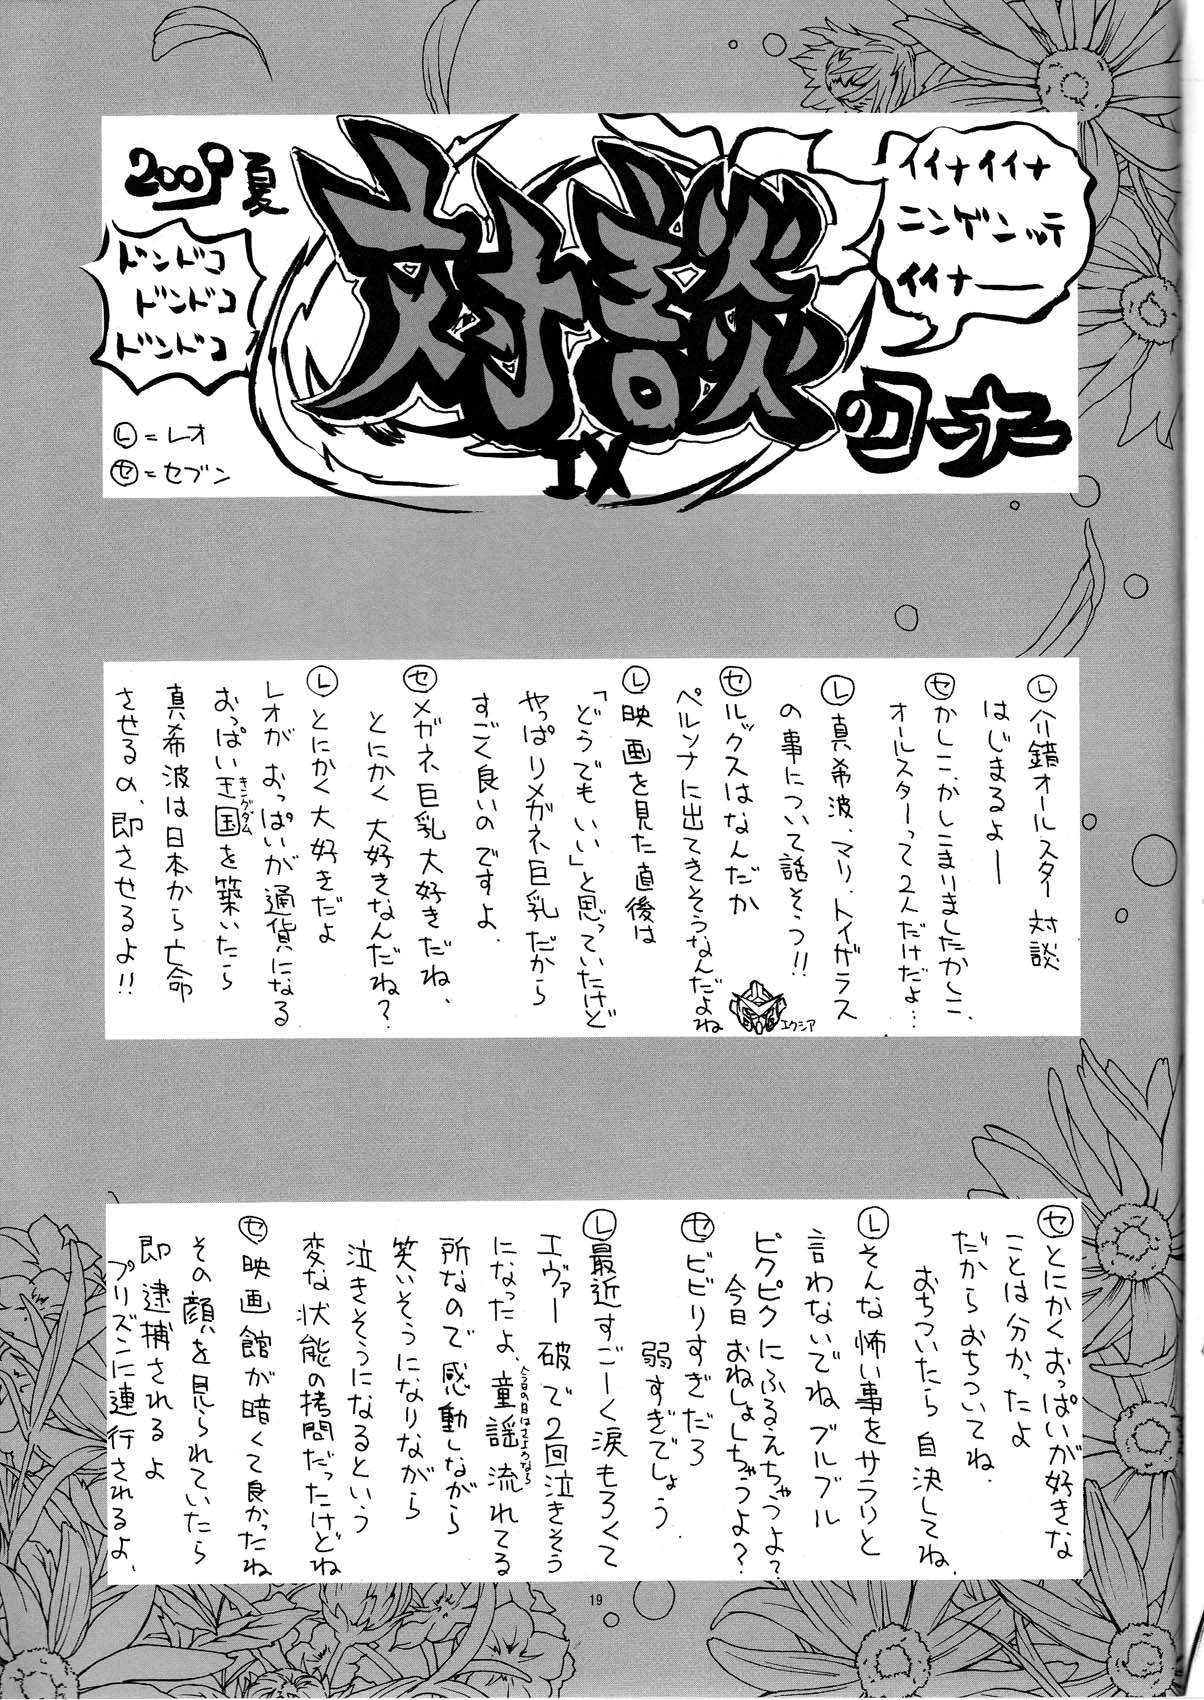 2009夏
対談
IX
のコーナー
イイナイイナ
ニンゲンッテ
イイナ――
ドンドコ
ドンドコ
ドンドコ
Ⓛ=レオ
㋝=セブン
Ⓛ介錯オールスター対談
はじまるよー
㋝かしこ、かしこまりましたかしこ、
オールスターって2人だけだよ…
Ⓛ真希波、マリ、トイザラス
の事について話そう!!
㋝ルックスはなんだか
ペルソナに出てきそうなんだよね
エクシア
Ⓛ映画を見た直後は
「どうでもいい」と思っていたけど
やっぱりメガネ巨乳だから
すごく良いのですよ、
㋝メガネ巨乳大好きだね、
とにかく大好きなんだね?
Ⓛとにかく大好きだよ
レオがおっぱいが通貨になる
おっぱい王国を築いたら
キングダム
真希波は日本から亡命
させるの、即させるよ!!
㋝とにかくおっぱいが好きな
ことは分かったよ
だからおちついてね、
おちついたら自決してね、
Ⓛそんな怖い事をサラリと
言わないでね ブルブル
ピクピクにふるえちゃうよ?
今日おねしょしちゃうよ?
㋝ビビりすぎだろ
弱すぎでしょう
Ⓛ最近すごーく涙もろくて
エヴァー破で2回泣きそう
になったよ、童謡流れてる
今日の日はさようなら
所なので感動しながら
笑いそうになりながら
泣きそうになるという
変な状態の拷問だったけどね
㋝映画館が暗くて良かったね
その顔を見られていたら
即逮捕されるよ
プリズンに連行されるよ、
19